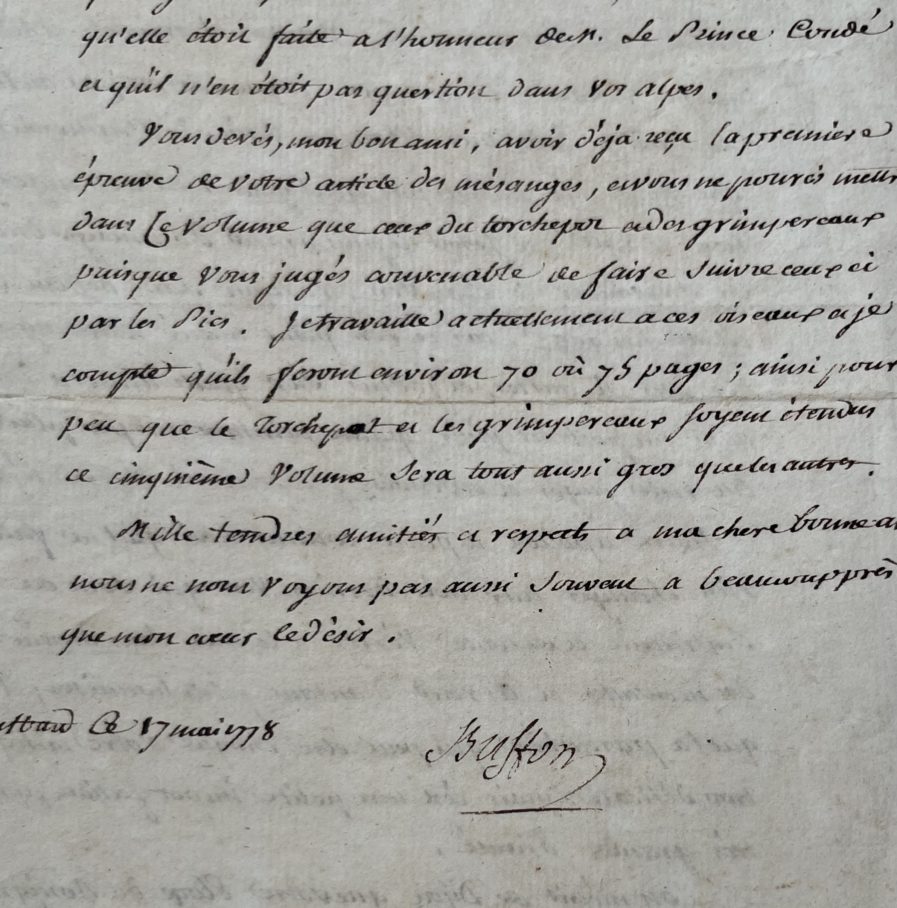 qu'elle étoit faite a l'honneur de M. Le Prince Condé
et qu'il n'en étoit pas question dans vos alpes.
Vous devés, mon bon ami, avoir déja reçu la premiere
épreuve de votre article des mésanges, et vous ne pourés mettre
dans Le volume que ceux du torchepot et des grimpereaux
puisque vous jugés convenable de faire suivre ceux ci
par les Pics. Je travaille actuellement a ces oiseaux et je
compte qu'ils feront environ 70 où 75 pages; ainsi pour
peu que le Torchepot et les grimpereaux soyent étendus
ce cinquième volume sera tout aussi gros que les autres.
Mille tendres amitiés et respects a ma chere bonne
nous ne nous voyons pas aussi souvent a beaucoup près
que mon cœur le désir.
Le 17 mai 1778
Buffon